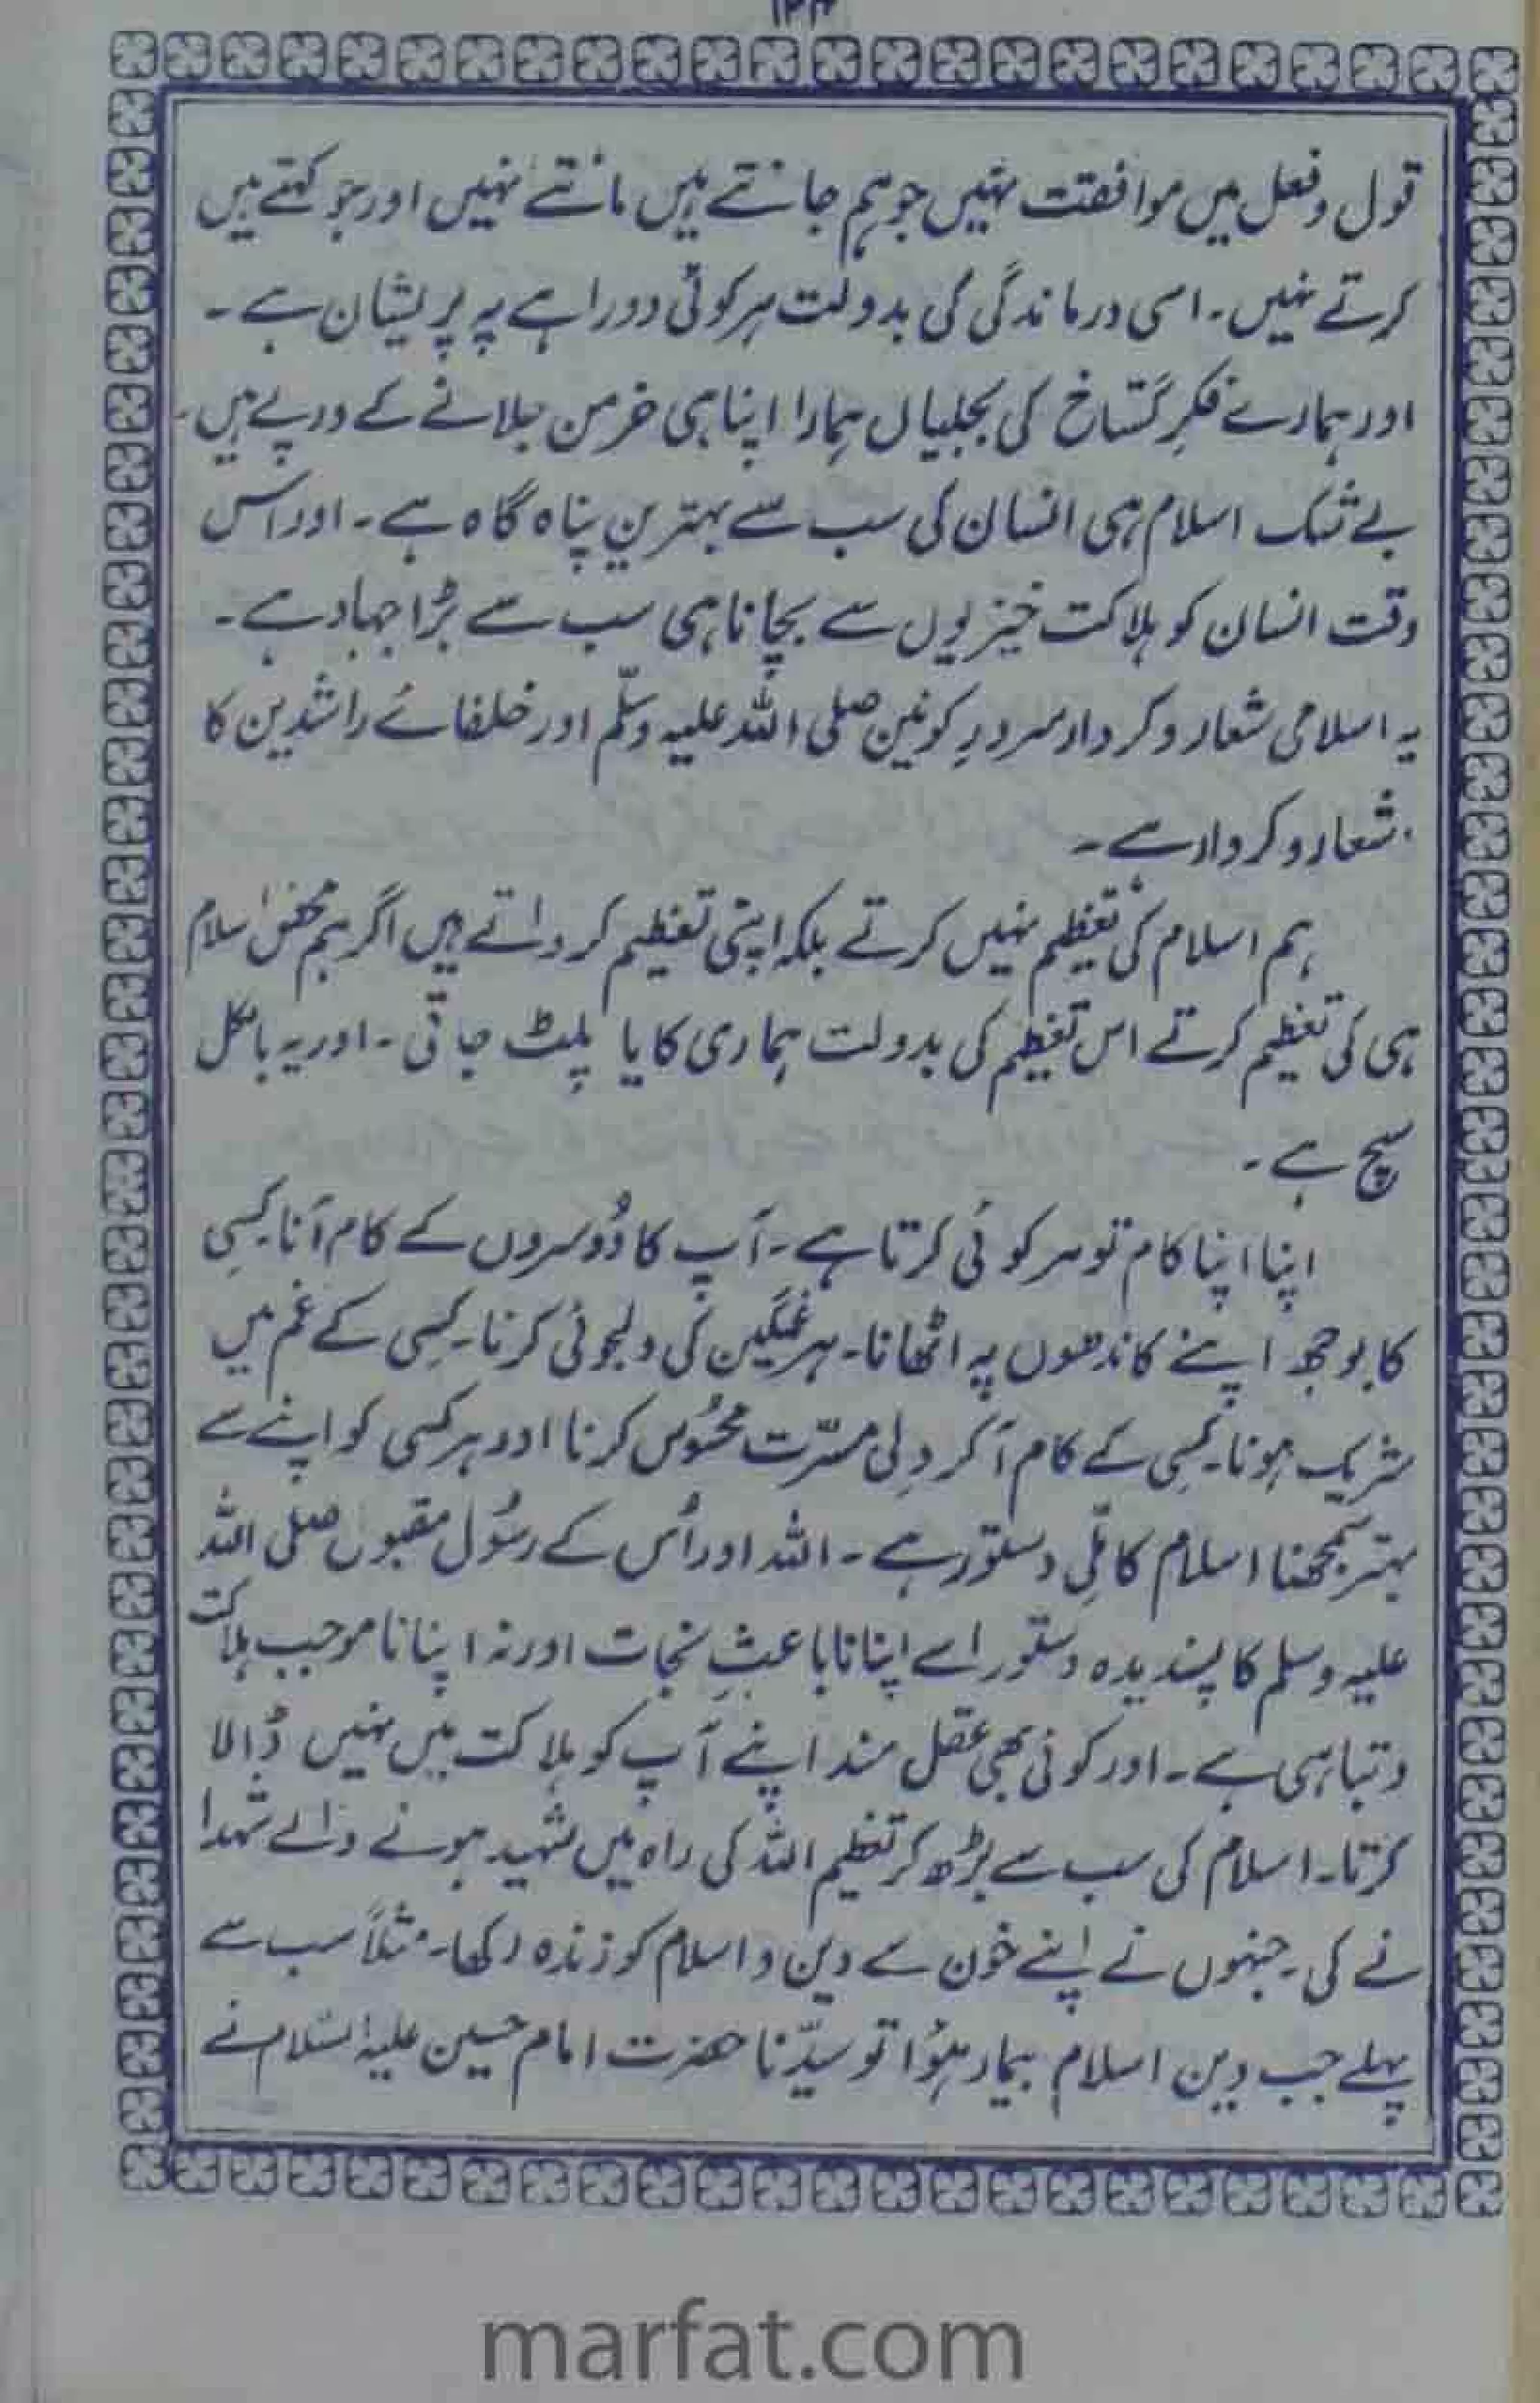 قول و فعل میں موافقت نہیں جو ہم جانتے ہیں مانتے نہیں اور جو کہتے ہیں
کرتے نہیں۔ اسی درماندگی کی بدولت ہر کوئی دوراہے پہ پریشان ہے۔
اور ہمارے فکرِ گستاخ کی بجلیاں ہمارا اپنا ہی خرمن جلانے کے درپے ہیں۔
بے شک اسلام ہی انسان کی سب سے بہترین پناہ گاہ ہے۔ اور اس
وقت انسان کو ہلاکت خیزیوں سے بچانا ہی سب سے بڑا جہاد ہے۔
یہ اسلامی شعار و کردار سرورِ کونین صلی اللہ علیہ وسلّم اور خلفائے راشدین کا
شعار و کردار ہے۔
ہم اسلام کی تعظیم نہیں کرتے بلکہ اپنی تعظیم کرواتے ہیں اگر ہم محض اسلام
ہی کی تعظیم کرتے اس تعظیم کی بدولت ہماری کایا پلٹ جاتی۔ اور یہ بالکل
سچ ہے۔
اپنا اپنا کام تو ہر کوئی کرتا ہے۔ آپ کا دُوسروں کے کام آنا کسِی
کا بوجھ اپنے کاندھوں پہ اٹھانا۔ ہر غمگین کی دلجوئی کرنا۔ کسِی کے غم میں
شریک ہونا۔ کسِی کے کام آکر دلِی مسرّت محسُوس کرنا اور ہر کسی کو اپنے سے
بہتر سمجھنا اسلام کا ملّی دستور ہے۔ اللہ اور اُس کے رسُول مقبول صلی اللہ
علیہ وسلم کا پسندیدہ دستور اسے اپنانا باعثِ نجات اور نہ اپنانا موجب ہلاکت
و تباہی ہے۔ اور کوئی بھی عقل مند اپنے آپ کو ہلاکت میں نہیں ڈالا
کرتا۔ اسلام کی سب سے بڑھ کر تعظیم اللہ کی راہ میں شہید ہونے والے شہدا
نے کی۔ جنہوں نے اپنے خون سے دین و اسلام کو زندہ رکھا۔ مثلاً سب سے
پہلے جب دین اسلام بیمار ہؤا تو سیّدنا حضرت امام حسین علیہ السّلام نے
marfat.com